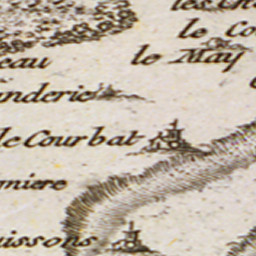 le Co
eau le May
anderie
le Courbat
miere
issons